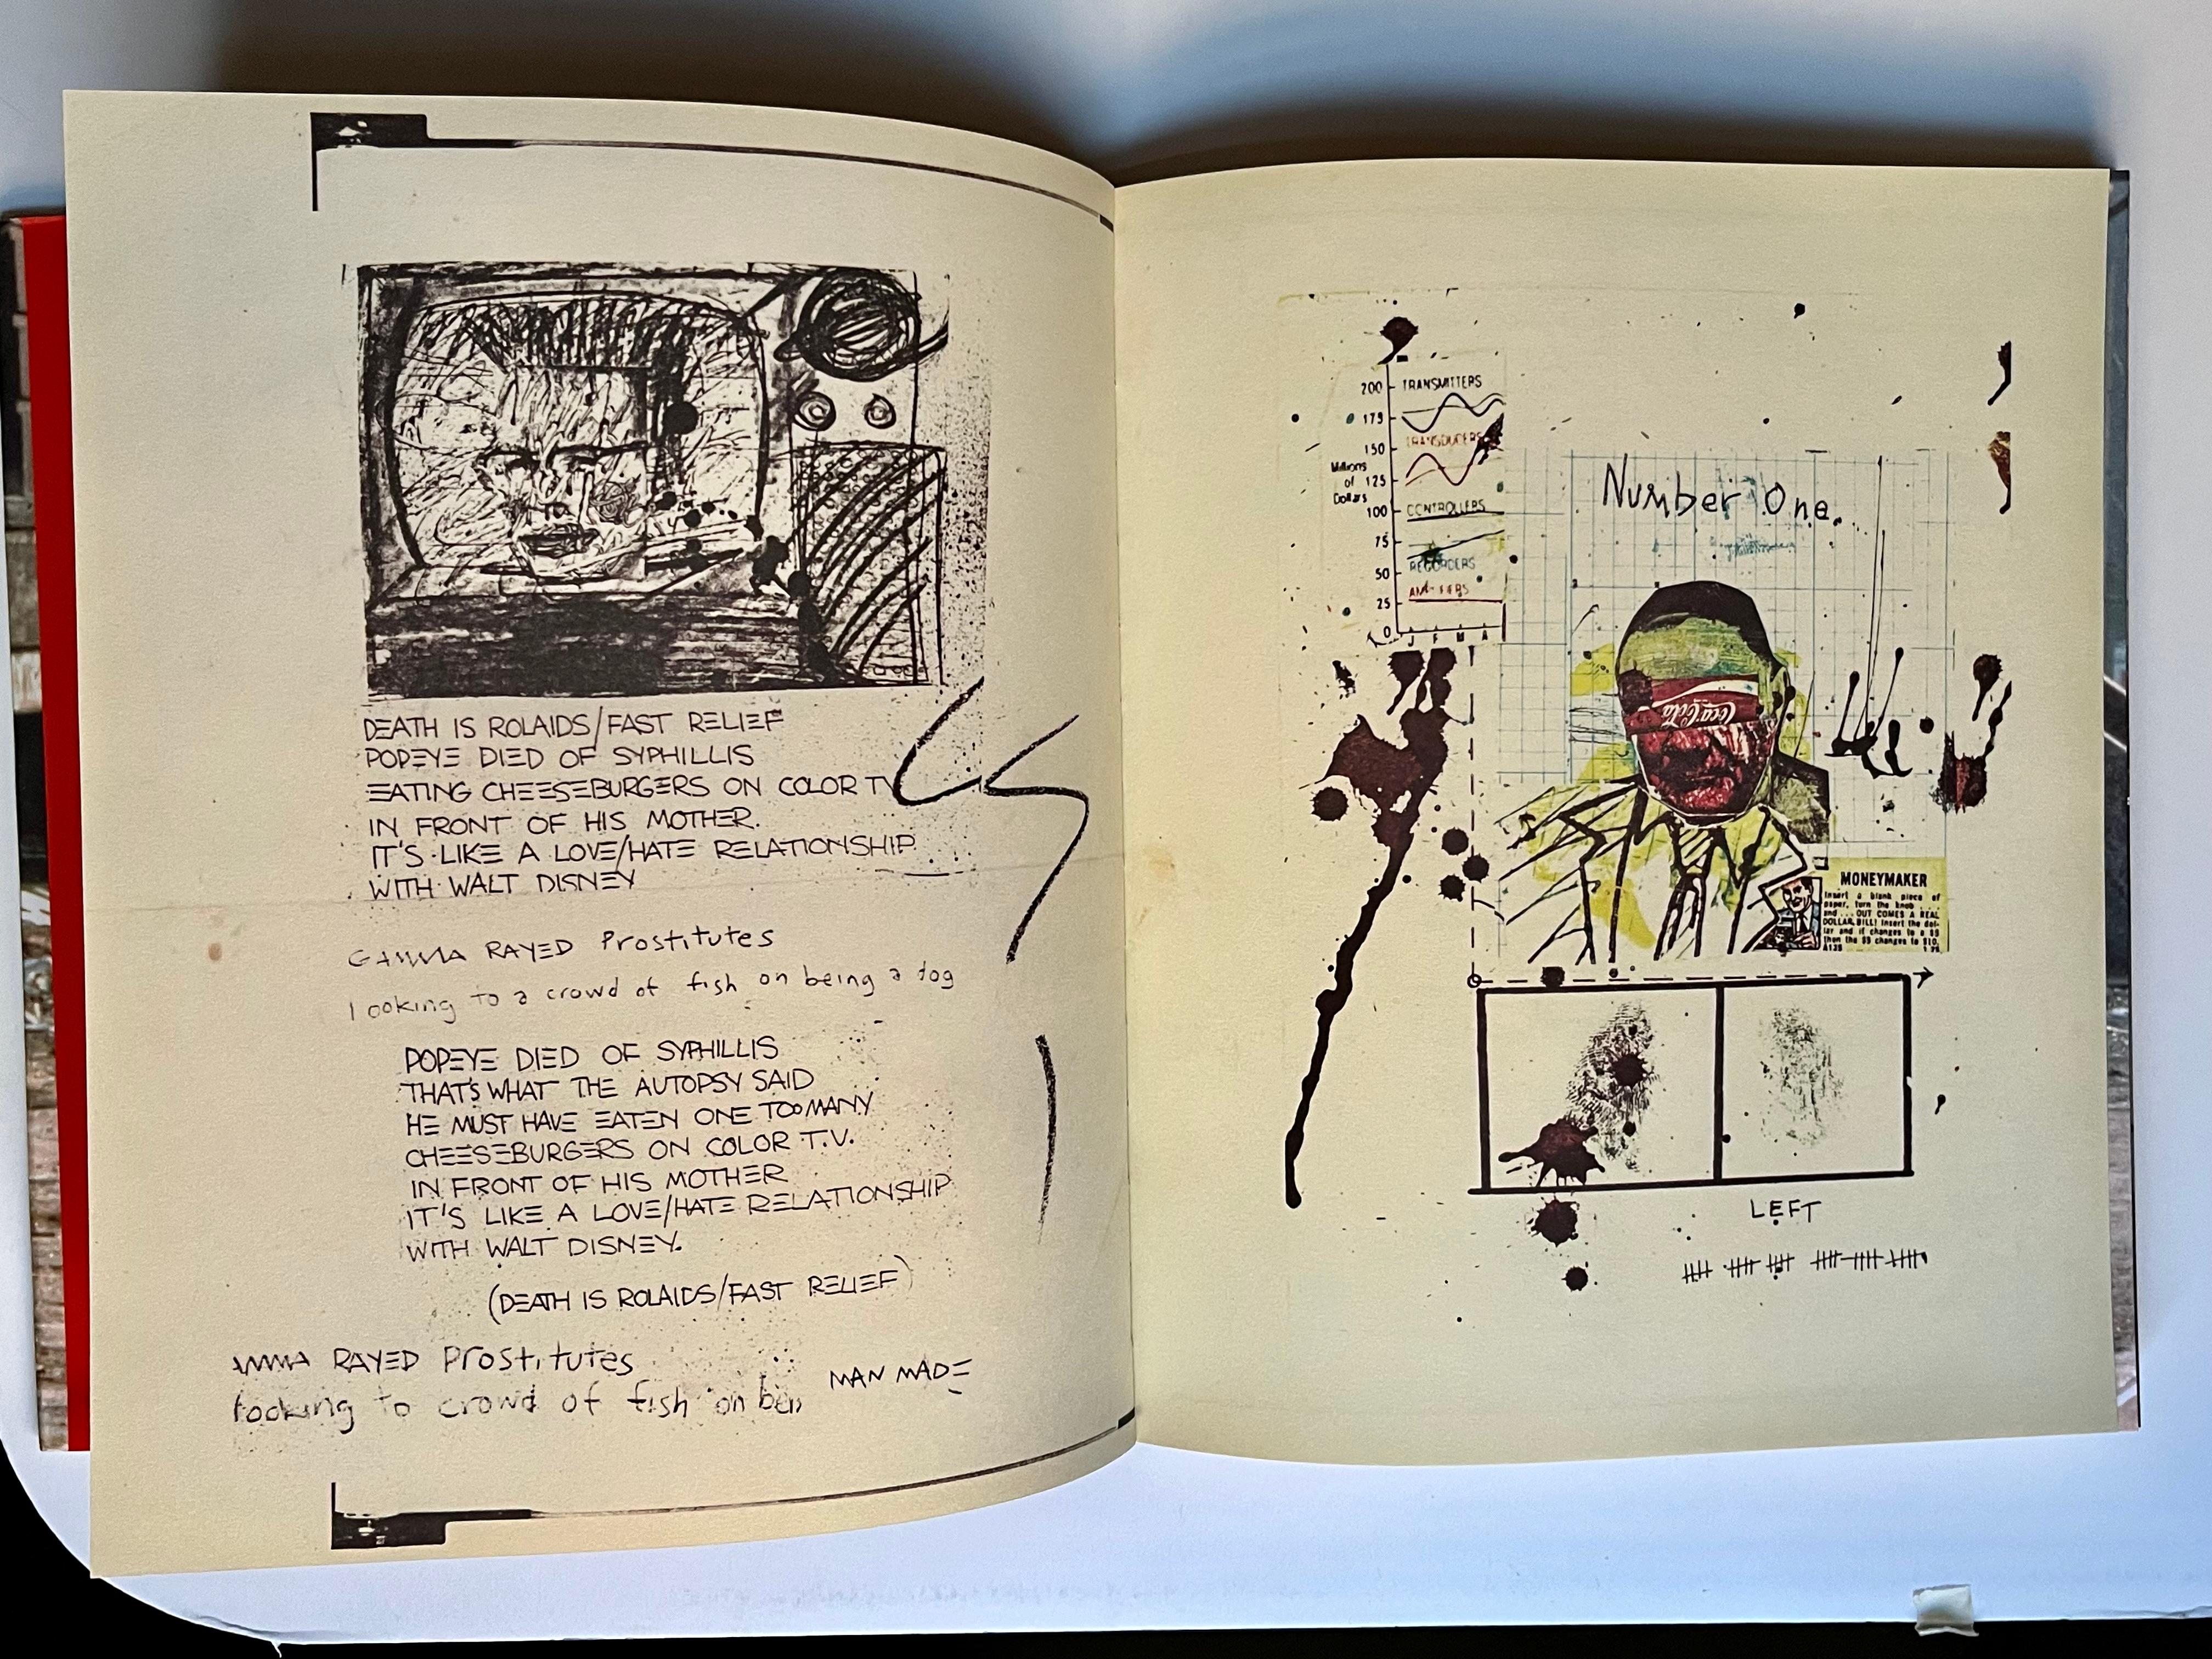 DEATH IS ROLAIDS/FAST RELIEF
POPEYE DIED OF SYPHILLIS
EATING CHEESEBURGERS ON COLOR TV
IN FRONT OF HIS MOTHER.
IT'S LIKE A LOVE/HATE RELATIONSHIP
WITH WALT DISNEY
GAMMA RAYED Prostitutes
looking to a crowd of fish on being a dog
POPEYE DIED OF SYPHILLIS
THAT'S WHAT THE AUTOPSY SAID
HE MUST HAVE EATEN ONE TOO MANY
CHEESEBURGERS ON COLOR T.V.
IN FRONT OF HIS MOTHER
IT'S LIKE A LOVE/HATE RELATIONSHIP
WITH WALT DISNEY.
(DEATH IS ROLAIDS/FAST RELIEF)
AMMA RAYED Prostitutes
looking to crowd of fish on bein
MAN MADE
200 TRANSMITTERS
175
TRANSDUCERS
150
Millions
of
Dollars
125
100 CONTROLLERS
75
RECORDERS
50
25
0
J F M A
Number One.
Coca-Cola
MONEYMAKER
Insert a blank piece of
paper, turn the knob
and...OUT COMES A REAL
DOLLAR BILL! Insert the dol-
lar and it changes to a $5
then the $5 changes to $10.
LEFT